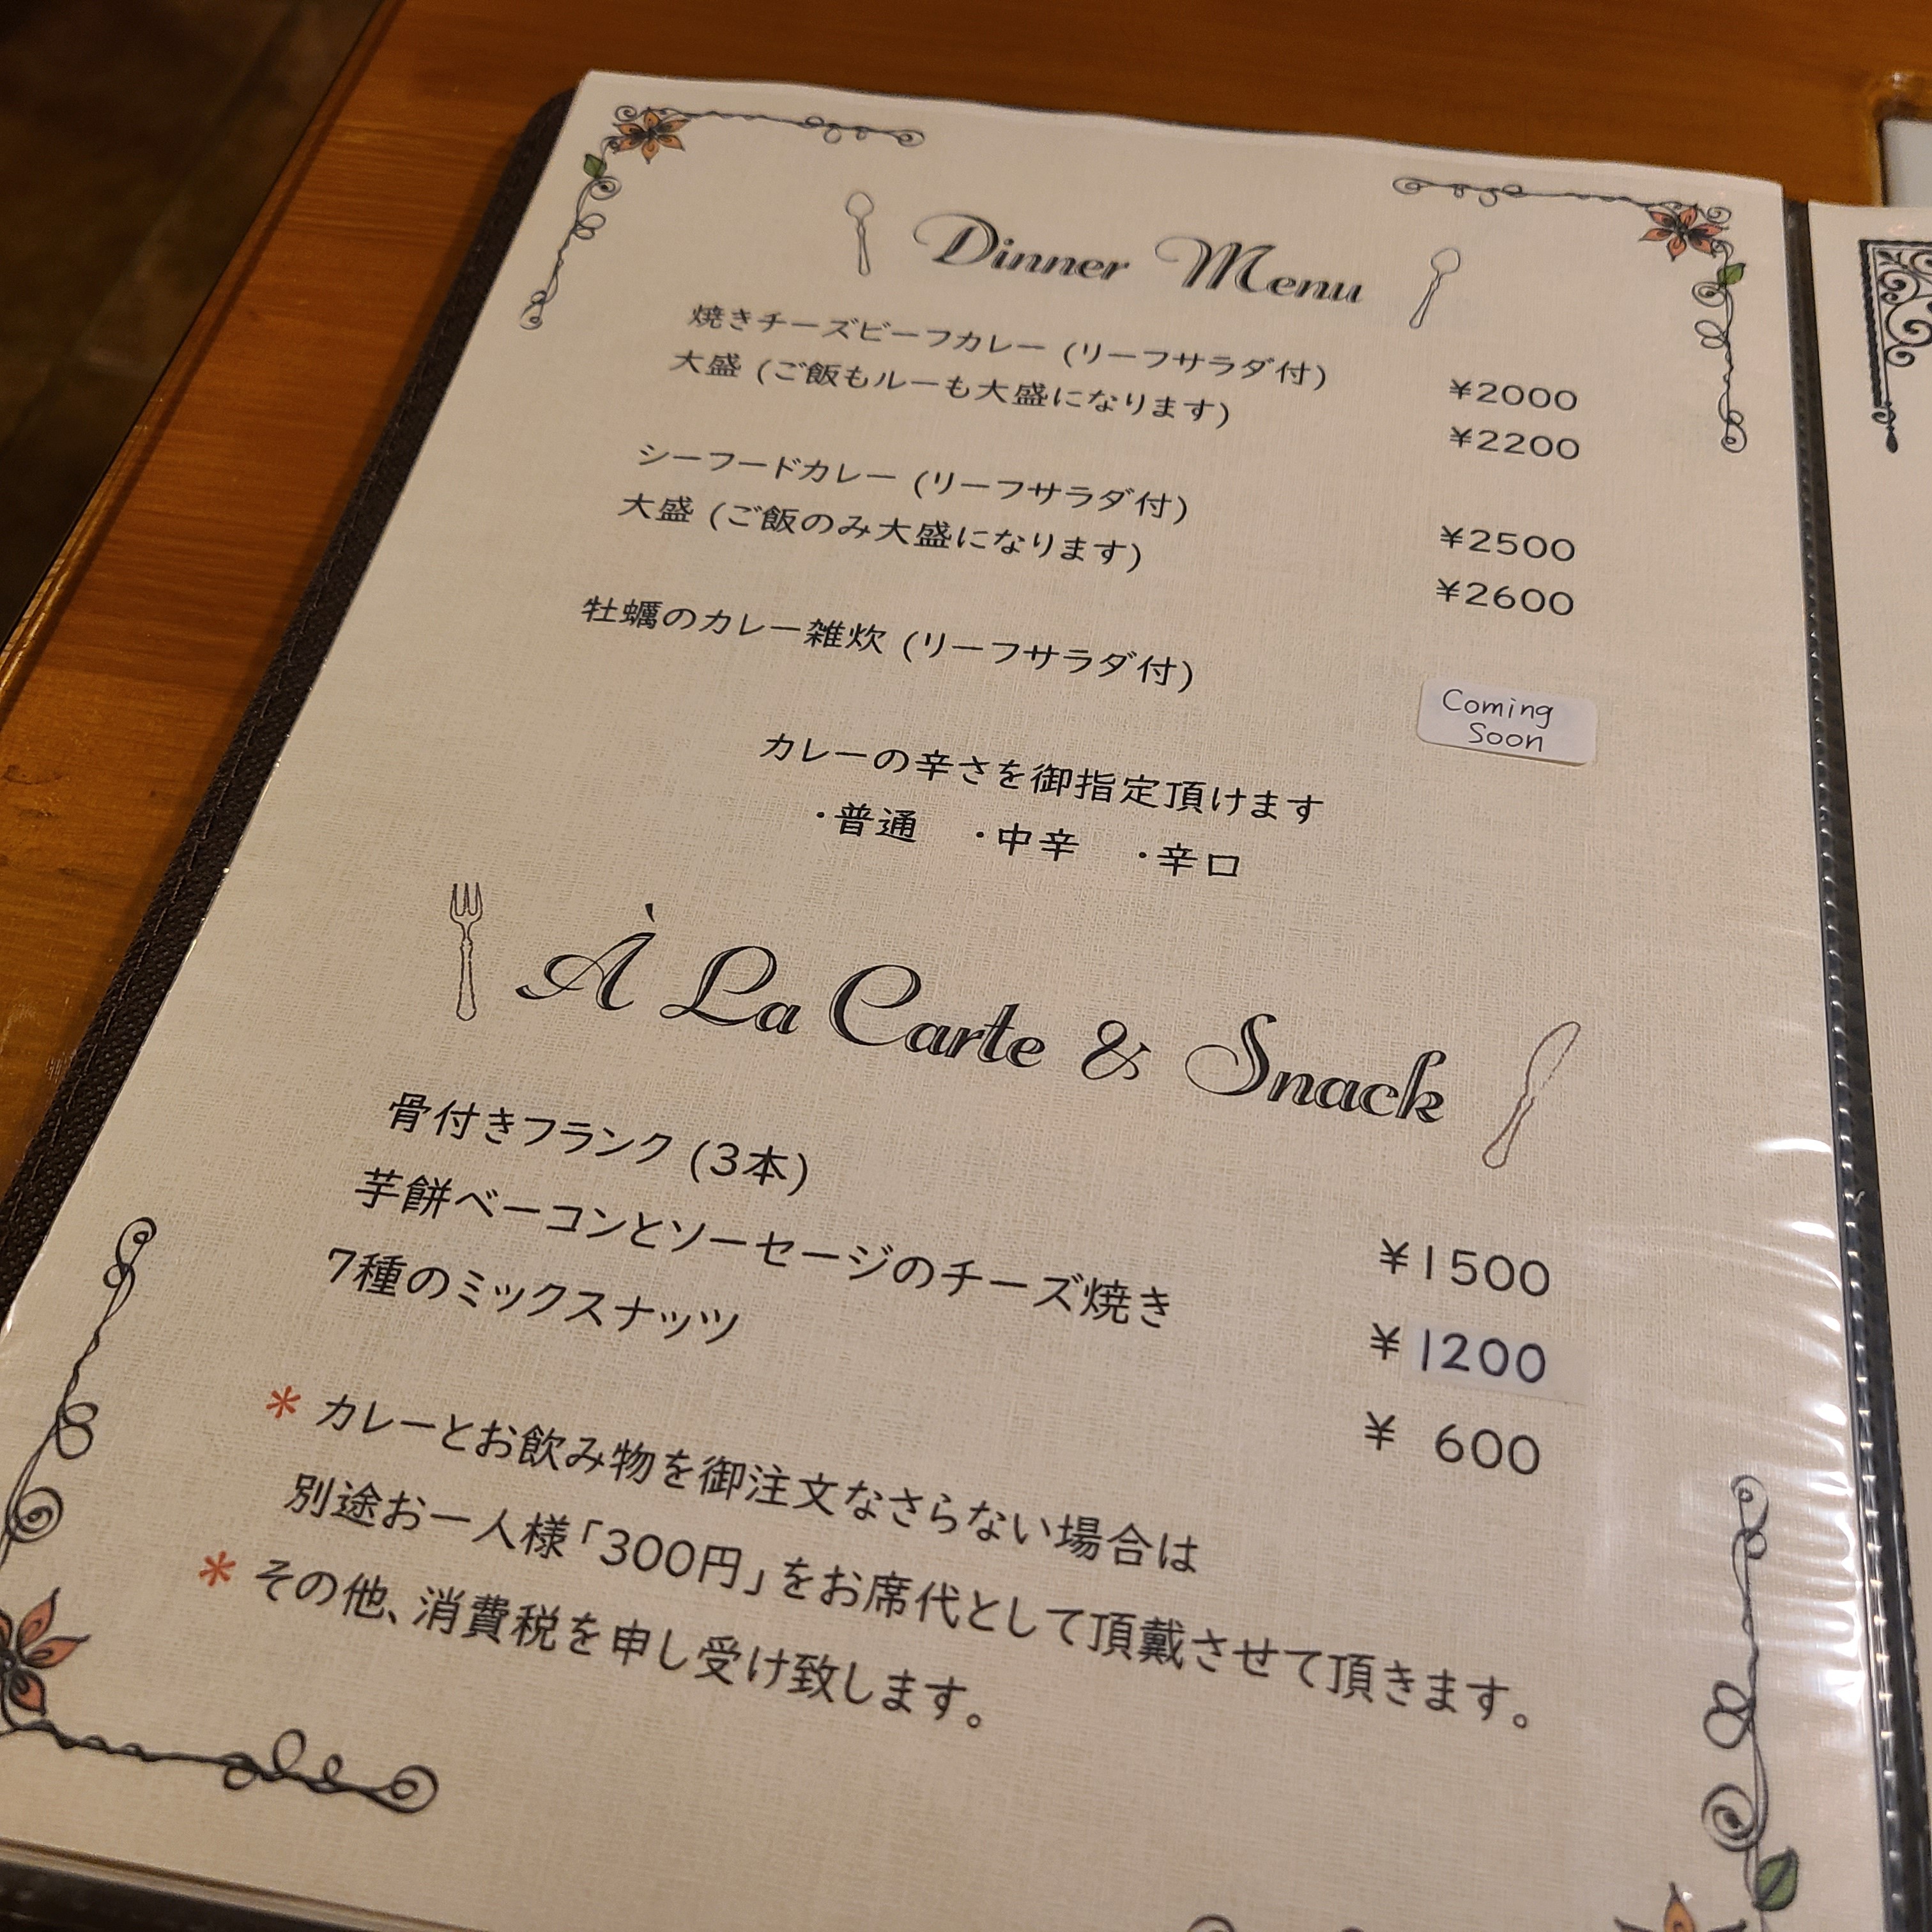 Dinner Menu
焼きチーズビーフカレー (リーフサラダ付) ¥2000
大盛 (ご飯もルーも大盛になります) ¥2200
シーフードカレー (リーフサラダ付) ¥2500
大盛 (ご飯のみ大盛になります) ¥2600
牡蠣のカレー雑炊 (リーフサラダ付)
Coming
Soon
カレーの辛さを御指定頂けます
・普通 ・中辛 ・辛口
À La Carte & Snack
骨付きフランク (3本) ¥1500
芋餅ベーコンとソーセージのチーズ焼き ¥1200
7種のミックスナッツ ¥ 600
* カレーとお飲み物を御注文なさらない場合は
別途お一人様「300円」をお席代として頂戴させて頂きます。
* その他、消費税を申し受け致します。